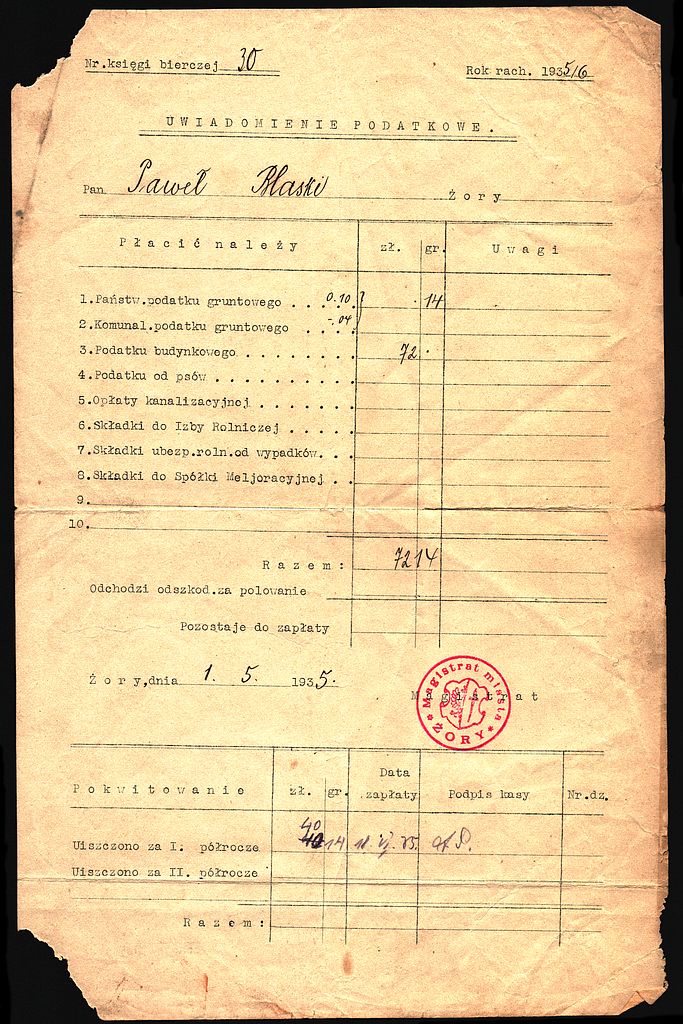 Nr.księgi bierczej 30
Rok rach. 1935/6
UWIADOMIENIE PODATKOWE.
Pan Paweł Blaski Żory
Płacić należy zł. gr. Uwagi
1.Państw.podatku gruntowego . . . . 0.10 } 14
2.Komunal.podatku gruntowego . . . . -.04
3.Podatku budynkowego . . . . . . . . 72 .
4.Podatku od psów . . . . . . . . . .
5.Opłaty kanalizacyjnej . . . . . . .
6.Składki do Izby Rolniczej . . . . .
7.Składki ubezp.roln.od wypadków. . .
8.Składki do Spółki Meljoracyjnej . .
9.
10.
Razem: 72 14
Odchodzi odszkod.za polowanie
Pozostaje do zapłaty
Żory,dnia 1. 5. 1935.
Magistrat
Magistrat miasta
* ŻORY *
Pokwitowanie zł. gr. Data zapłaty Podpis kasy Nr.dz.
Uiszczono za I. półrocze 40 14
Uiszczono za II. półrocze
Razem: